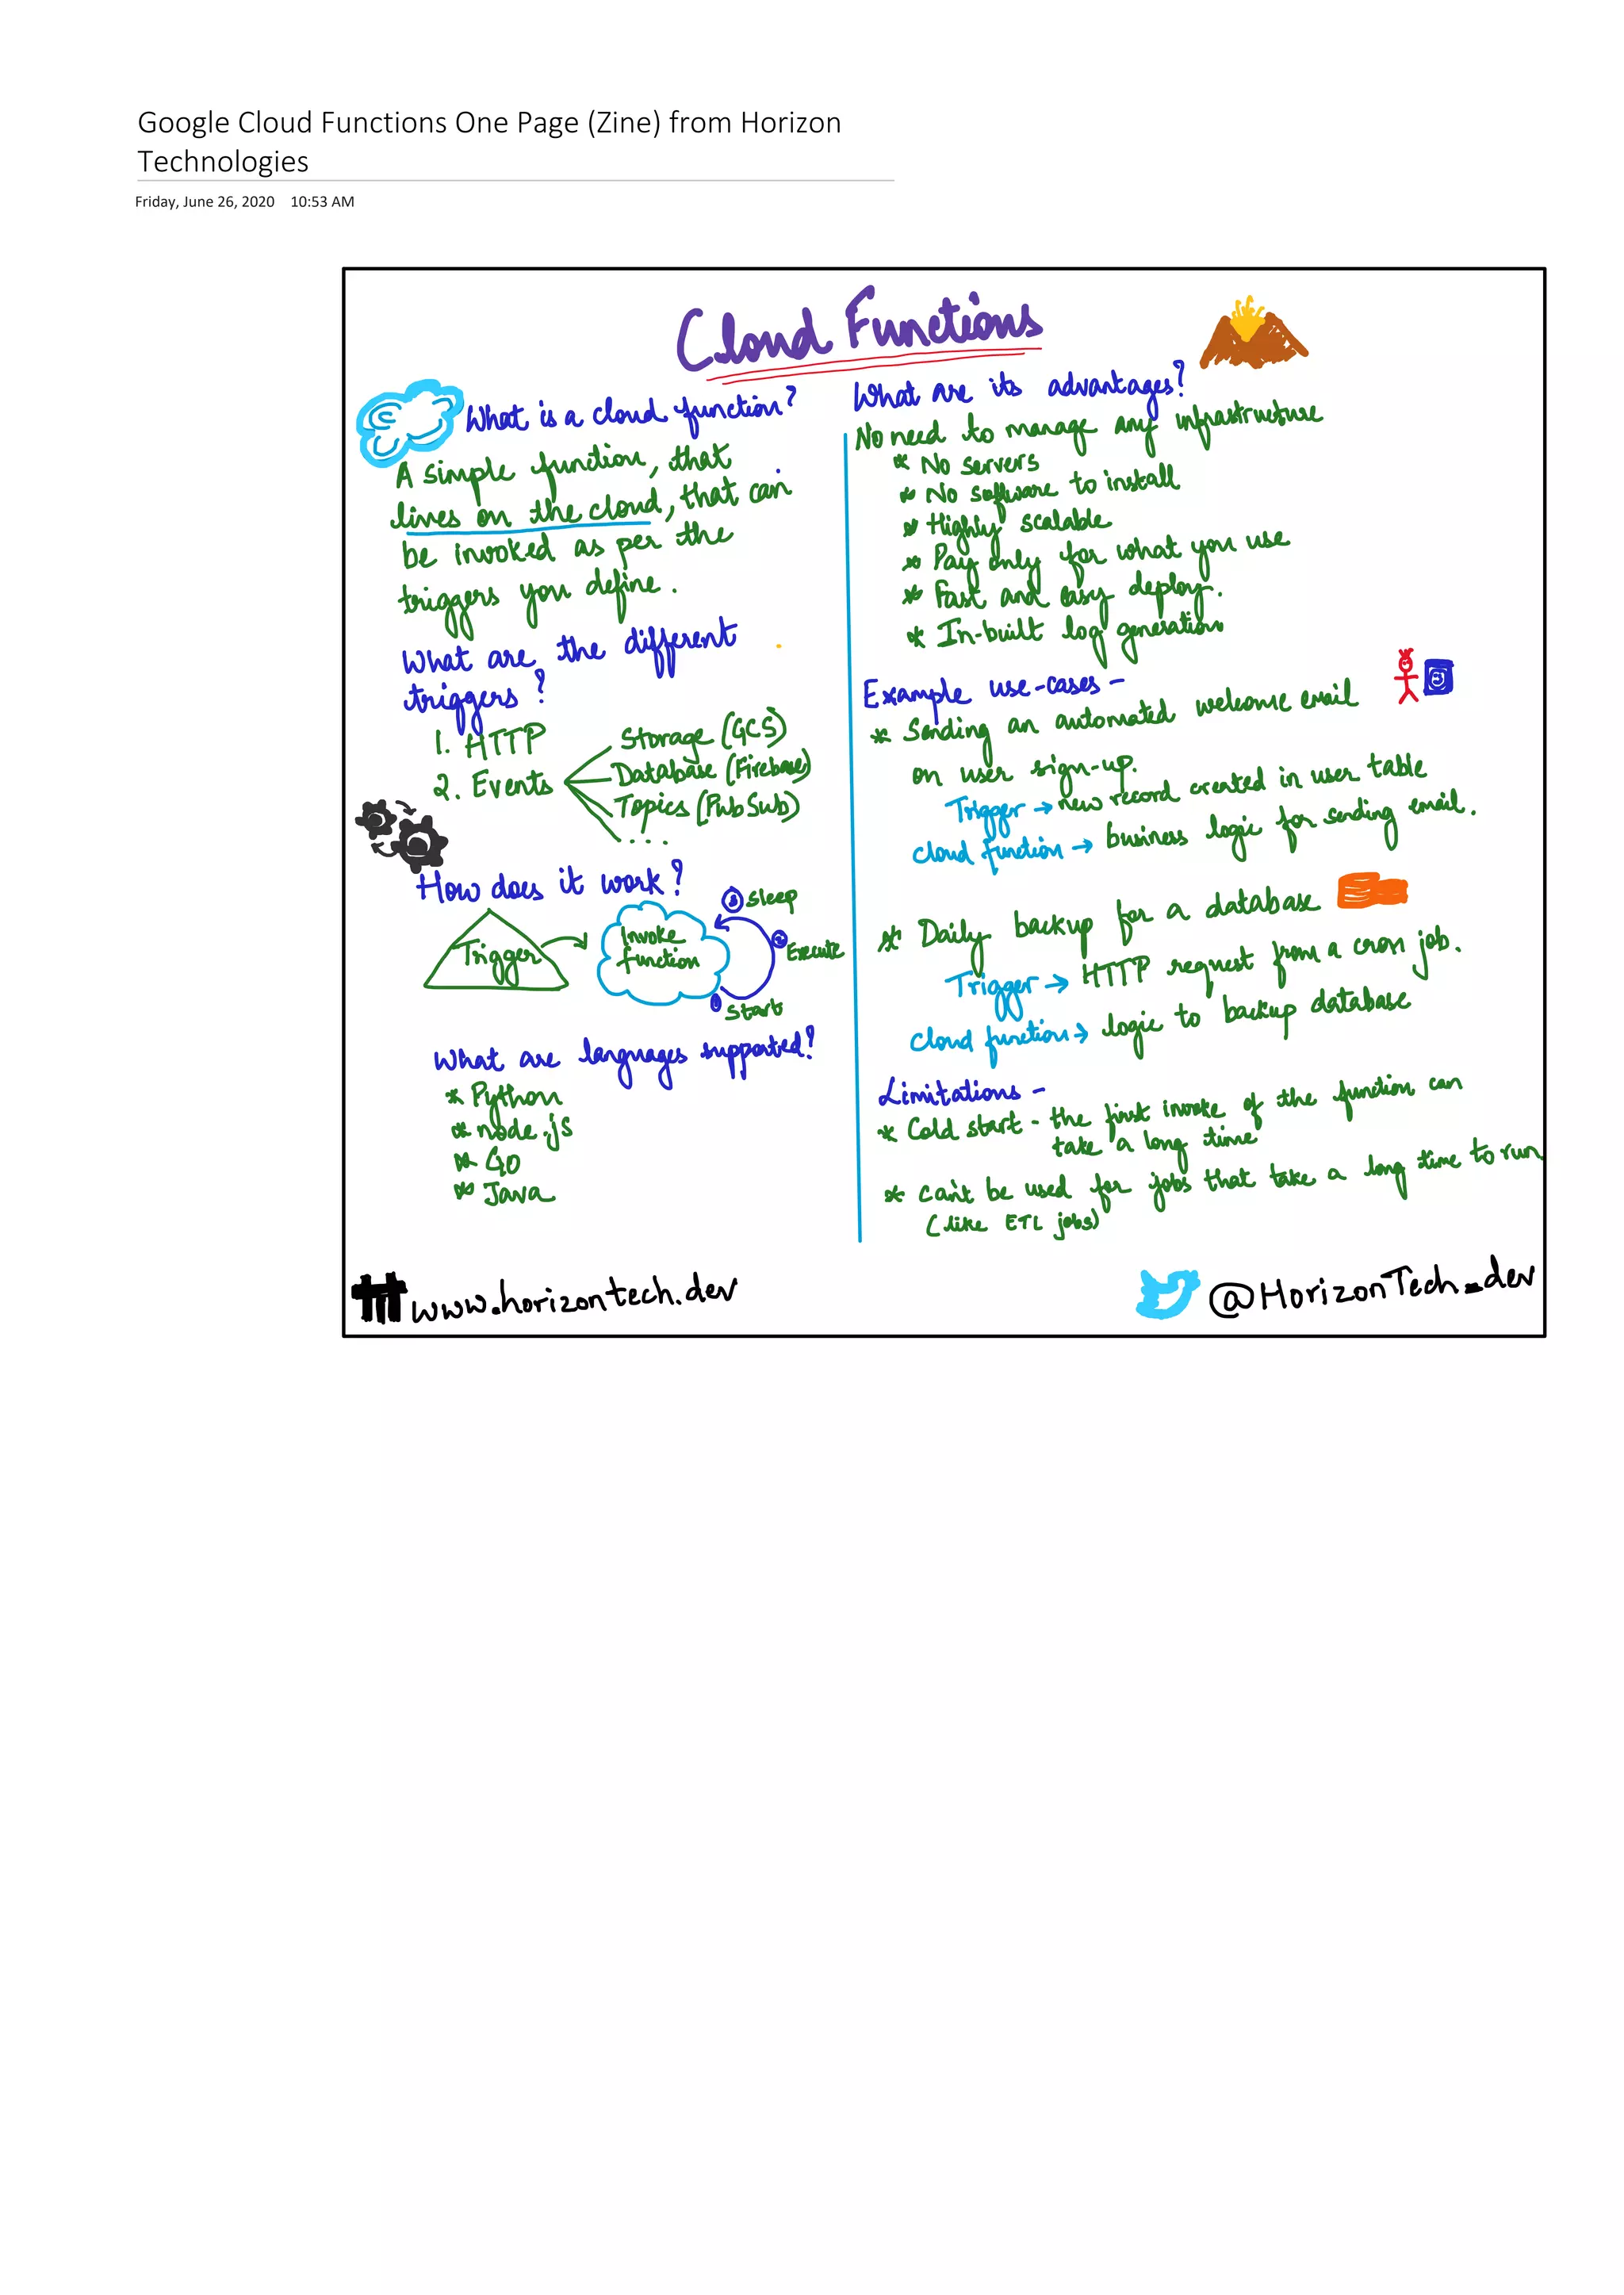 Google Cloud Functions One Page (Zine) from Horizon
Technologies
Friday, June 26, 2020 10:53 AM
Cloud Functions
What is a cloud function?
A simple function, that
lives on the cloud, that can
be invoked as per the
triggers you define.
What are the different
triggers?
1. HTTP
2. Events
Storage (GCS)
Database (Firebase)
Topics (PubSub)
....
How does it work?
Trigger
Invoke
function
3 Sleep
2 Execute
1 Start
What are languages supported?
* Python
* node.js
* GO
* Java
What are its advantages?
No need to manage any infrastructure
* No servers
* No software to install
* Highly scalable
* Pay only for what you use
* Fast and easy deploy.
* In-built log generation
Example use-cases -
* Sending an automated welcome email
on user sign-up.
Trigger → new record created in user table
cloud function → business logic for sending email.
* Daily backup for a database
Trigger → HTTP request from a cron job.
cloud function → logic to backup database
Limitations -
* Cold start - the first invoke of the function can
take a long time
* can't be used for jobs that take a long time to run.
(like ETL jobs)
www.horizontech.dev
@HorizonTech_dev